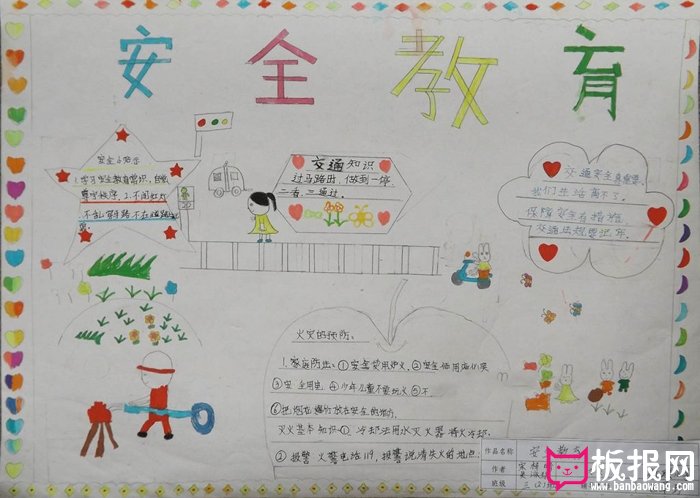 安全教育
安全小知识
1.学习安全教育常识，自觉
遵守秩序。2.不闯红灯
不乱穿马路不在道路
交通知识
过马路时，做到一停
二看，三通过。
交通安全真重要，
我们生活离不了。
保障安全有措施
交通法规要记牢。
火灾的预防。
1.家庭防火：①安全使用炉火，②安全使用
③安全用电，④少年儿童不要玩火⑤不
⑥把烟花爆竹放在安全的地方。
灭火基本知识①、冷却法用水灭火器将火冷却，
②报警火警电话119，报警说清失火的地点。
作品名称 安 教育
作者
班级 三
板报网
www.banbaowang.com